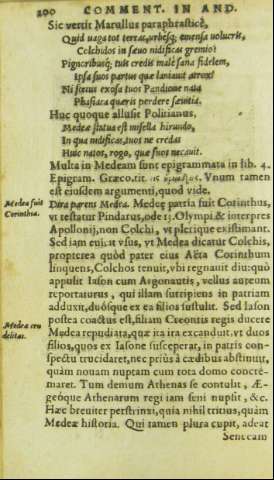 200 COMMENT. IN AND.
Sic vertit Marullus paraphrasticè,
Quid uaga tot terras, urbesq; emensa uolucris,
Colchidos in sæuo nidificas gremio?
Pignoribusq; tuis credis malè sana fidelem,
Ipsa suos partus quæ laniauit atrox?
Ni fœtus exosa tuos Pandione nata
Phasiaca quæris perdere sæuitia.
Huc quoque allusit Politianus,
Medeæ statua est misella hirundo,
In qua nidificas, tuos ne credas
Huic natos, rogo, quæ suos necauit.
Multa in Medeam sunt epigrammata in lib. 4.
Epigram. Græco. tit. Vnum tamen
est eiusdem argumenti, quod vide.
Medea fuit
Corinthia.
Dira parens Medea. Medeę patria fuit Corinthus,
vt testatur Pindarus, ode 13. Olympi. & interpres
Apollonij, non Colchi, vt plerique existimant.
Sed iam eui. it vsus, vt Medea dicatur Colchis,
propterea quòd pater eius Aeëta Corinthum
linquens, Colchos tenuit, vbi regnauit diu: quò
appulit Iason cum Argonautis, vellus aureum
reportaturus, qui illam surripiens in patriam
adduxit, duósque ex ea filios sustulit. Sed Iason
postea coactus est, filiam Creontis regis ducere
Medea cru
delitas.
Medea repudiata, quæ ira ita excanduit, vt duos
filios, quos ex Iasone susceperat, in patris con-
spectu trucidaret, nec priùs à cædibus abstinuit,
quàm nouam nuptam cum tota domo concre-
maret. Tum demum Athenas se contulit, Æ-
geóque Athenarum regi iam seni nupsit, &c.
Hæc breuiter perstrinxi, quia nihil tritius, quàm
Medeæ historia. Qui tamen plura cupit, adeat
Senecam